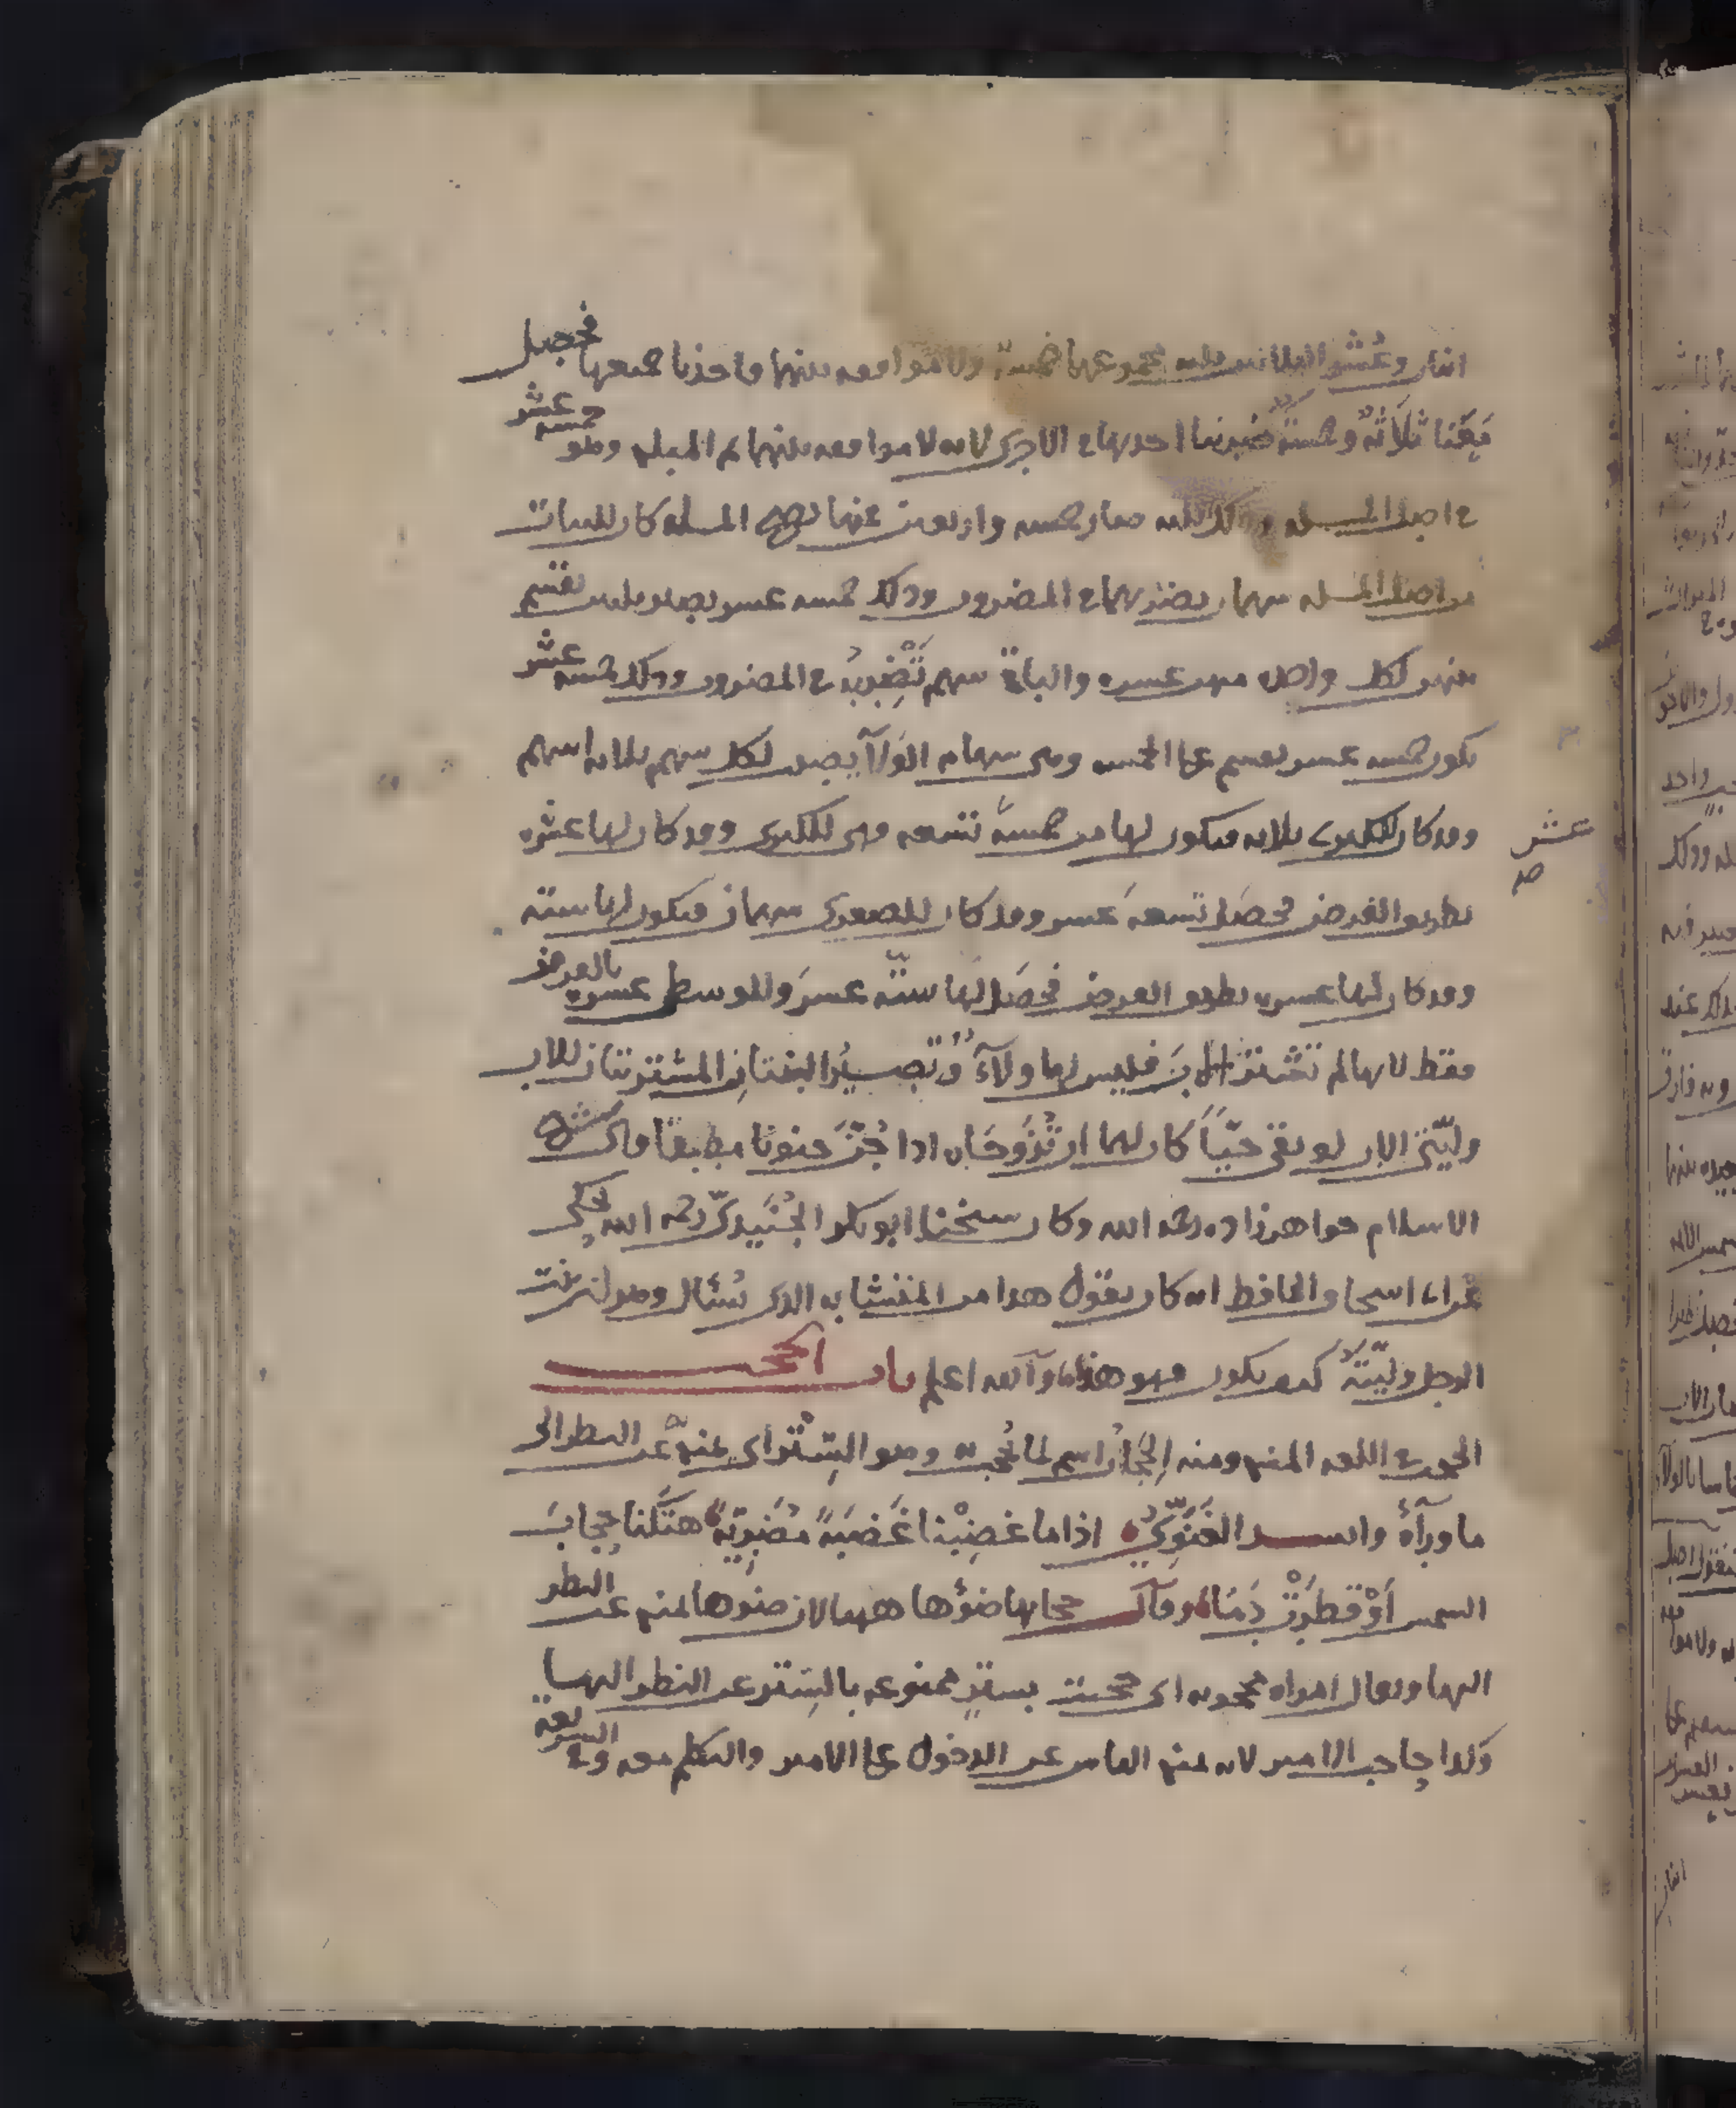 اثنان وعُشر الثلاثين ثلثه مجموعها خمسة ولا موافقه بينهما فاخذنا جميعها فحصل
مَعَنا ثلاثةٌ وخمسةٌ ضربنا احديهما في الاخرى لانه لا موافقه بينهما ثم المبلغ وهو خمسه عشر
في اصل المسله وذلك ثلثه صار خمسه واربعين منها تصح المسله كان للبنات
من اصل المسله سهمان يضربهما في المضروب وذلك خمسه عشر يصير ثلثين تقسم
بينهن لكل واحده منهن عشره والباقي سهم تَضْرِبُهُ في المضروب وذلك خمسه عشر
يكون خمسه عشر يقسم على الخمسه وهي سهام الوَلآ يصير لكل سهم ثلاثه اسهم
وقد كان للكبرى ثلاثه فيكون لها من خمسةَ تسعه وهي للكبرى وقد كان لها عشره
عشر صح
بطريق الفرض فحصَل تسعهَ عَشر وقد كان للصغرى سهمان فيكون لها ستة
وقد كان لها عشره بطريق الفرض فحصَل لها ستّه عشرَ وللوسطى عشره بالفرض
فقط لانها لم تَشْترِ الابَ فليس لها ولآءٌ وُتصيرُ البنتانِ المشتريتان للاب
وليّتَيْ الاب لو بقي حيّاً كان لهما ان تُزَوِّجَاه اذا جُنَّ جنونًا مطبقًا قال شيخ
الاسلام خواهرزاده رحمه الله وكان شيخنا ابو بكر الجُنَيدىّ رحمه الله يحكي
عن ابى اسحاق الحافظ انه كان يقول هذا من المتشابه الذى يُسئال وهو ان بنت
الرجل وليّتهُ كيف يكون فهو هذا والله اعلم باب الحجب
الحجب في اللغه المنع ومنه الحِجَابُ اسم لما يُحجب به وهو السِّتْر اى يمنع عن النظر الى
ما ورآءهُ وانشد الغَنَوِىُّ اذا ما غضِبْنا غَضبَةً مُضَرِيّةً هتكنا حِجابَ
الشمس اَوْ قطرَتْ دَمًا وقال حجابها ضوْءُها ههنا لان ضوءها يمنع عن النظر
اليها ويقال امراه محجوبه اى حجبت بستر ممنوعه بالستر عن النظر اليها
وكذا حاجب الامير لانه يمنع الناس عن الدخول على الامير والتكلم معه وفي الشريعة